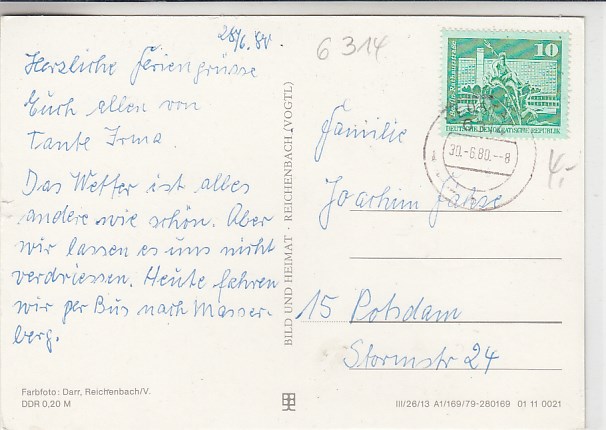 28/6.80.
Herzliche Feriengrüsse
Euch allen von
Tante Irma.
Das Wetter ist alles
andere wie schön. Aber
wir lassen es uns nicht
verdriessen. Heute fahren
wir per Bus nach Masser-
berg.
Farbfoto: Darr, Reichenbach/V.
DDR 0,20 M
BILD UND HEIMAT · REICHENBACH (VOGTL)
6 314
10
DEUTSCHE DEMOKRATISCHE REPUBLIK
30.-6.80.--8
4,-
Familie
Joachim
15 Potsdam
Stormstr 24
III/26/13 A1/169/79-280169 01 11 0021